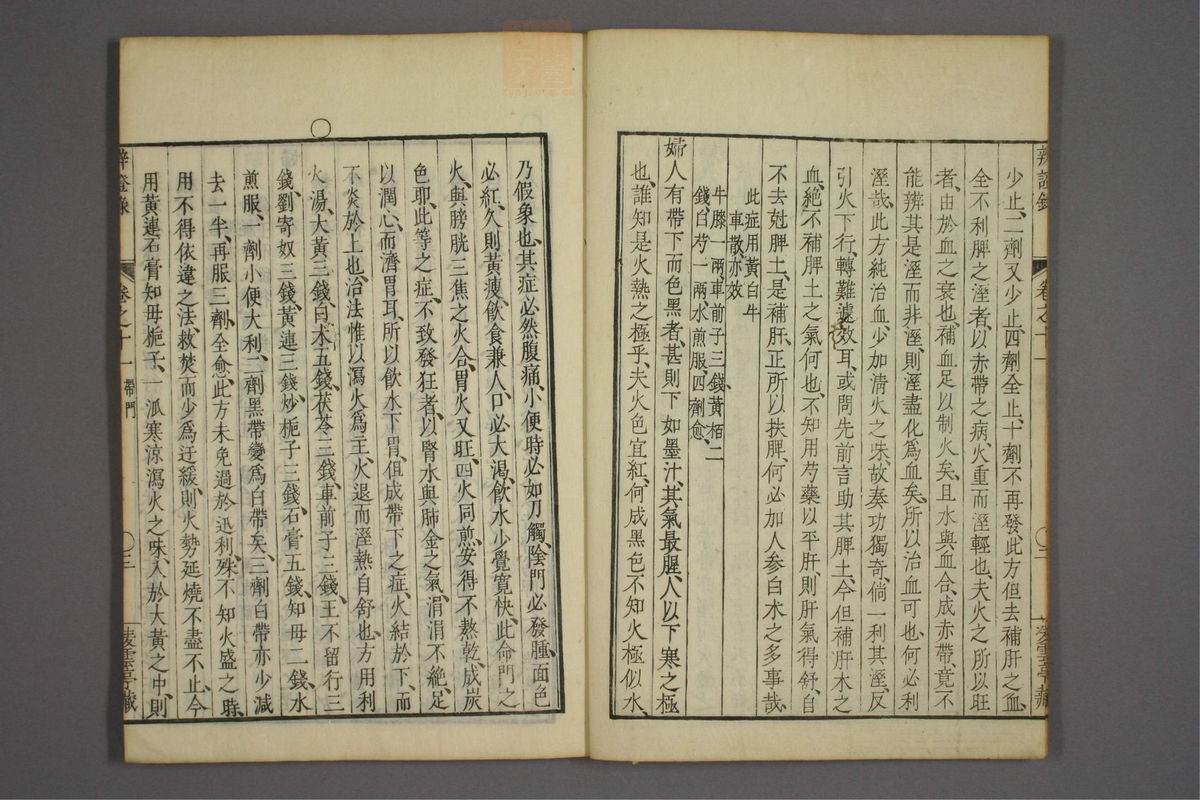 辨證錄
卷之十一
○二
少止、二劑又少止、四劑全止、十劑不再發、此方但去補肝之血、
全不利脾之溼者、以赤帶之病、火重而溼輕也、夫火之所以旺
者、由於血之衰也、補血足以制火矣、且水與血合、成赤帶、竟不
能辨其是溼而非溼、則溼盡化爲血矣、所以治血可也、何必利
溼哉、此方純治血、少加清火之味、故奏功獨奇、倘一利其溼、反
引火下行、轉難遽效耳、或問先前言助其脾土、今但補肝木之
血、絕不補脾土之氣何也、不知用芍藥以平肝、則肝氣得舒、自
不去尅脾土、是補肝、正所以扶脾、何必加人參白术之多事哉、
此症用黃白牛
車散、亦效
牛膝一兩、車前子三錢、黃栢二
錢、白芍一兩、水煎服、四劑愈、
婦人有帶下而色黑者、甚則下如墨汁、其氣最腥、人以下寒之極
也、誰知是火熱之極乎、夫火色宜紅、何成黑色、不知火極似水、
乃假象也、其症必然腹痛、小便時必如刀觸、陰門必發腫、面色
必紅、久則黃瘦、飲食兼人、口必大渴、飲水少覺寬快、此命門之
火、與膀胱三焦之火合、胃火又旺、四火同煎、安得不熬乾、成炭
色耶、此等之症、不致發狂者、以腎水與肺金之氣、涓涓不絕、足
以潤心、而濟胃耳、所以飲水下胃、但成帶下之症、火結於下、而
不炎於上也、治法惟以瀉火爲主、火退而溼熱自舒也、方用利
火湯、大黃三錢、白术五錢、茯苓三錢、車前子三錢、王不留行三
錢、劉寄奴三錢、黃連三錢、炒梔子三錢、石膏五錢、知母二錢、水
煎服、一劑小便大利、二劑黑帶變爲白帶矣、三劑白帶亦少減
去一半、再服三劑、全愈、此方未免過於迅利、殊不知火盛之時、
用不得依違之法、救焚而少爲迂緩、則火勢延燒不盡不止、今
用黃連石膏知母梔子、一派寒涼瀉火之味、入於大黃之中、則
辨證錄
卷之十一
帶門
○三